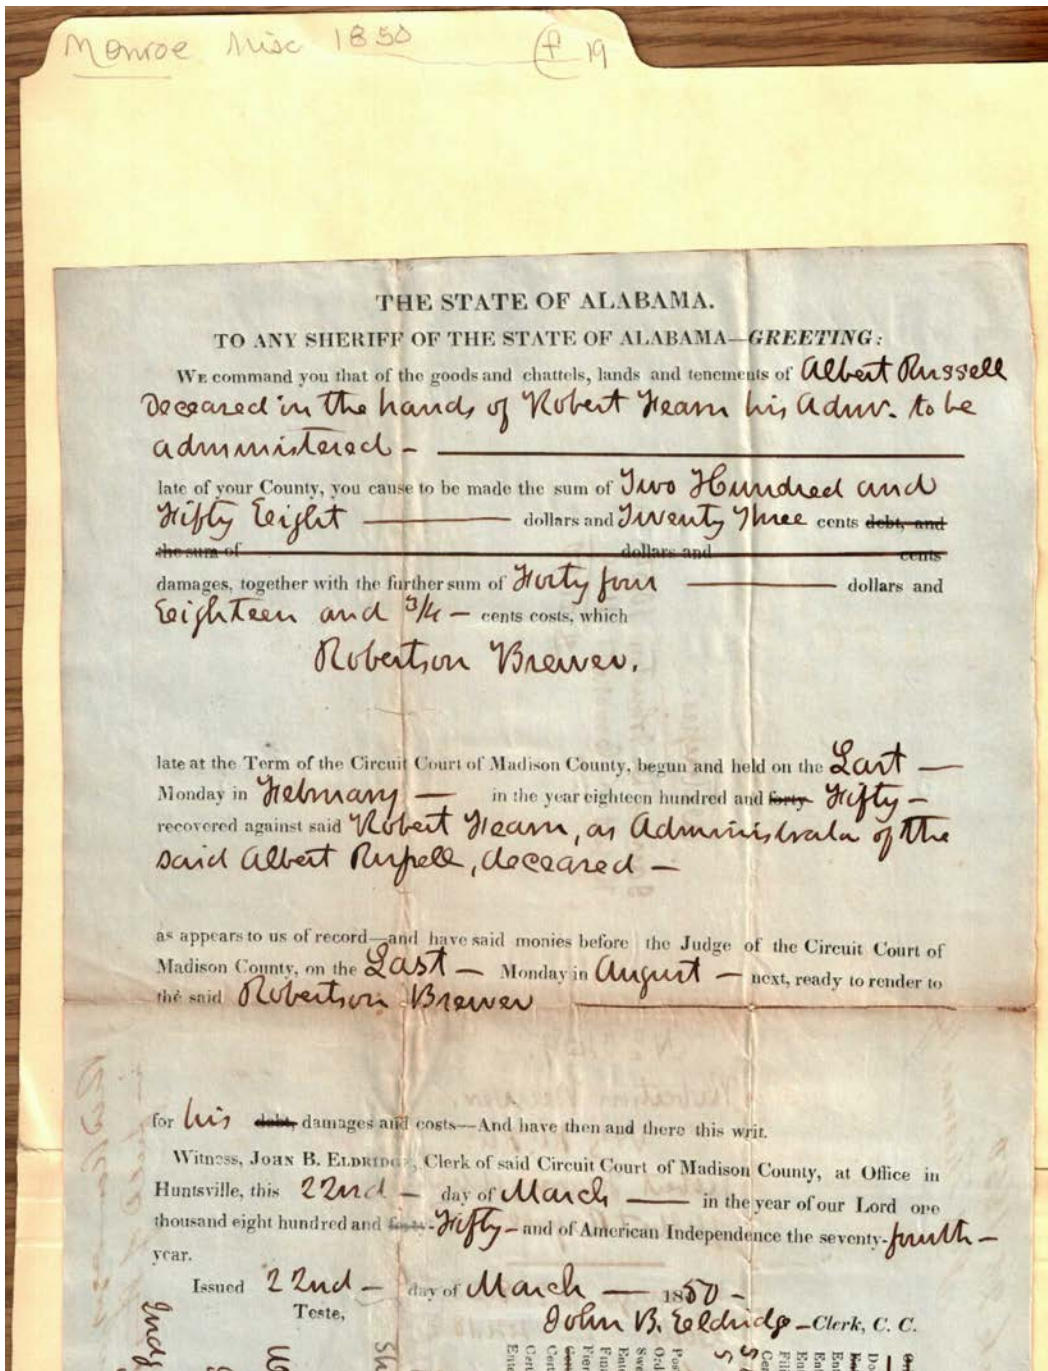 Monroe Misc 1850 f 19
THE STATE OF ALABAMA.
TO ANY SHERIFF OF THE STATE OF ALABAMA—GREETING:
WE command you that of the goods and chattels, lands and tenements of Albert Russell
Deceased in the hands of Robert Fearn his Admr. to be
administered —
late of your County, you cause to be made the sum of Two Hundred and
Fifty Eight dollars and Twenty Three cents debt, and
the sum of dollars and cents
damages, together with the further sum of Forty four dollars and
Eighteen and 3/4 — cents costs, which
Robertson Brewer.
late at the Term of the Circuit Court of Madison County, begun and held on the Last —
Monday in February — in the year eighteen hundred and forty Fifty —
recovered against said Robert Fearn, as Administrator of the
said Albert Russell, deceased —
as appears to us of record—and have said monies before the Judge of the Circuit Court of
Madison County, on the Last — Monday in August — next, ready to render to
the said Robertson Brewer
for his debt, damages and costs—And have then and there this writ.
Witness, JOHN B. ELDRIDGE, Clerk of said Circuit Court of Madison County, at Office in
Huntsville, this 22nd — day of March — in the year of our Lord one
thousand eight hundred and forty - Fifty — and of American Independence the seventy-fourth —
year.
Issued 22nd — day of March — 1850 —
Teste,
John B. Eldridge — Clerk, C. C.